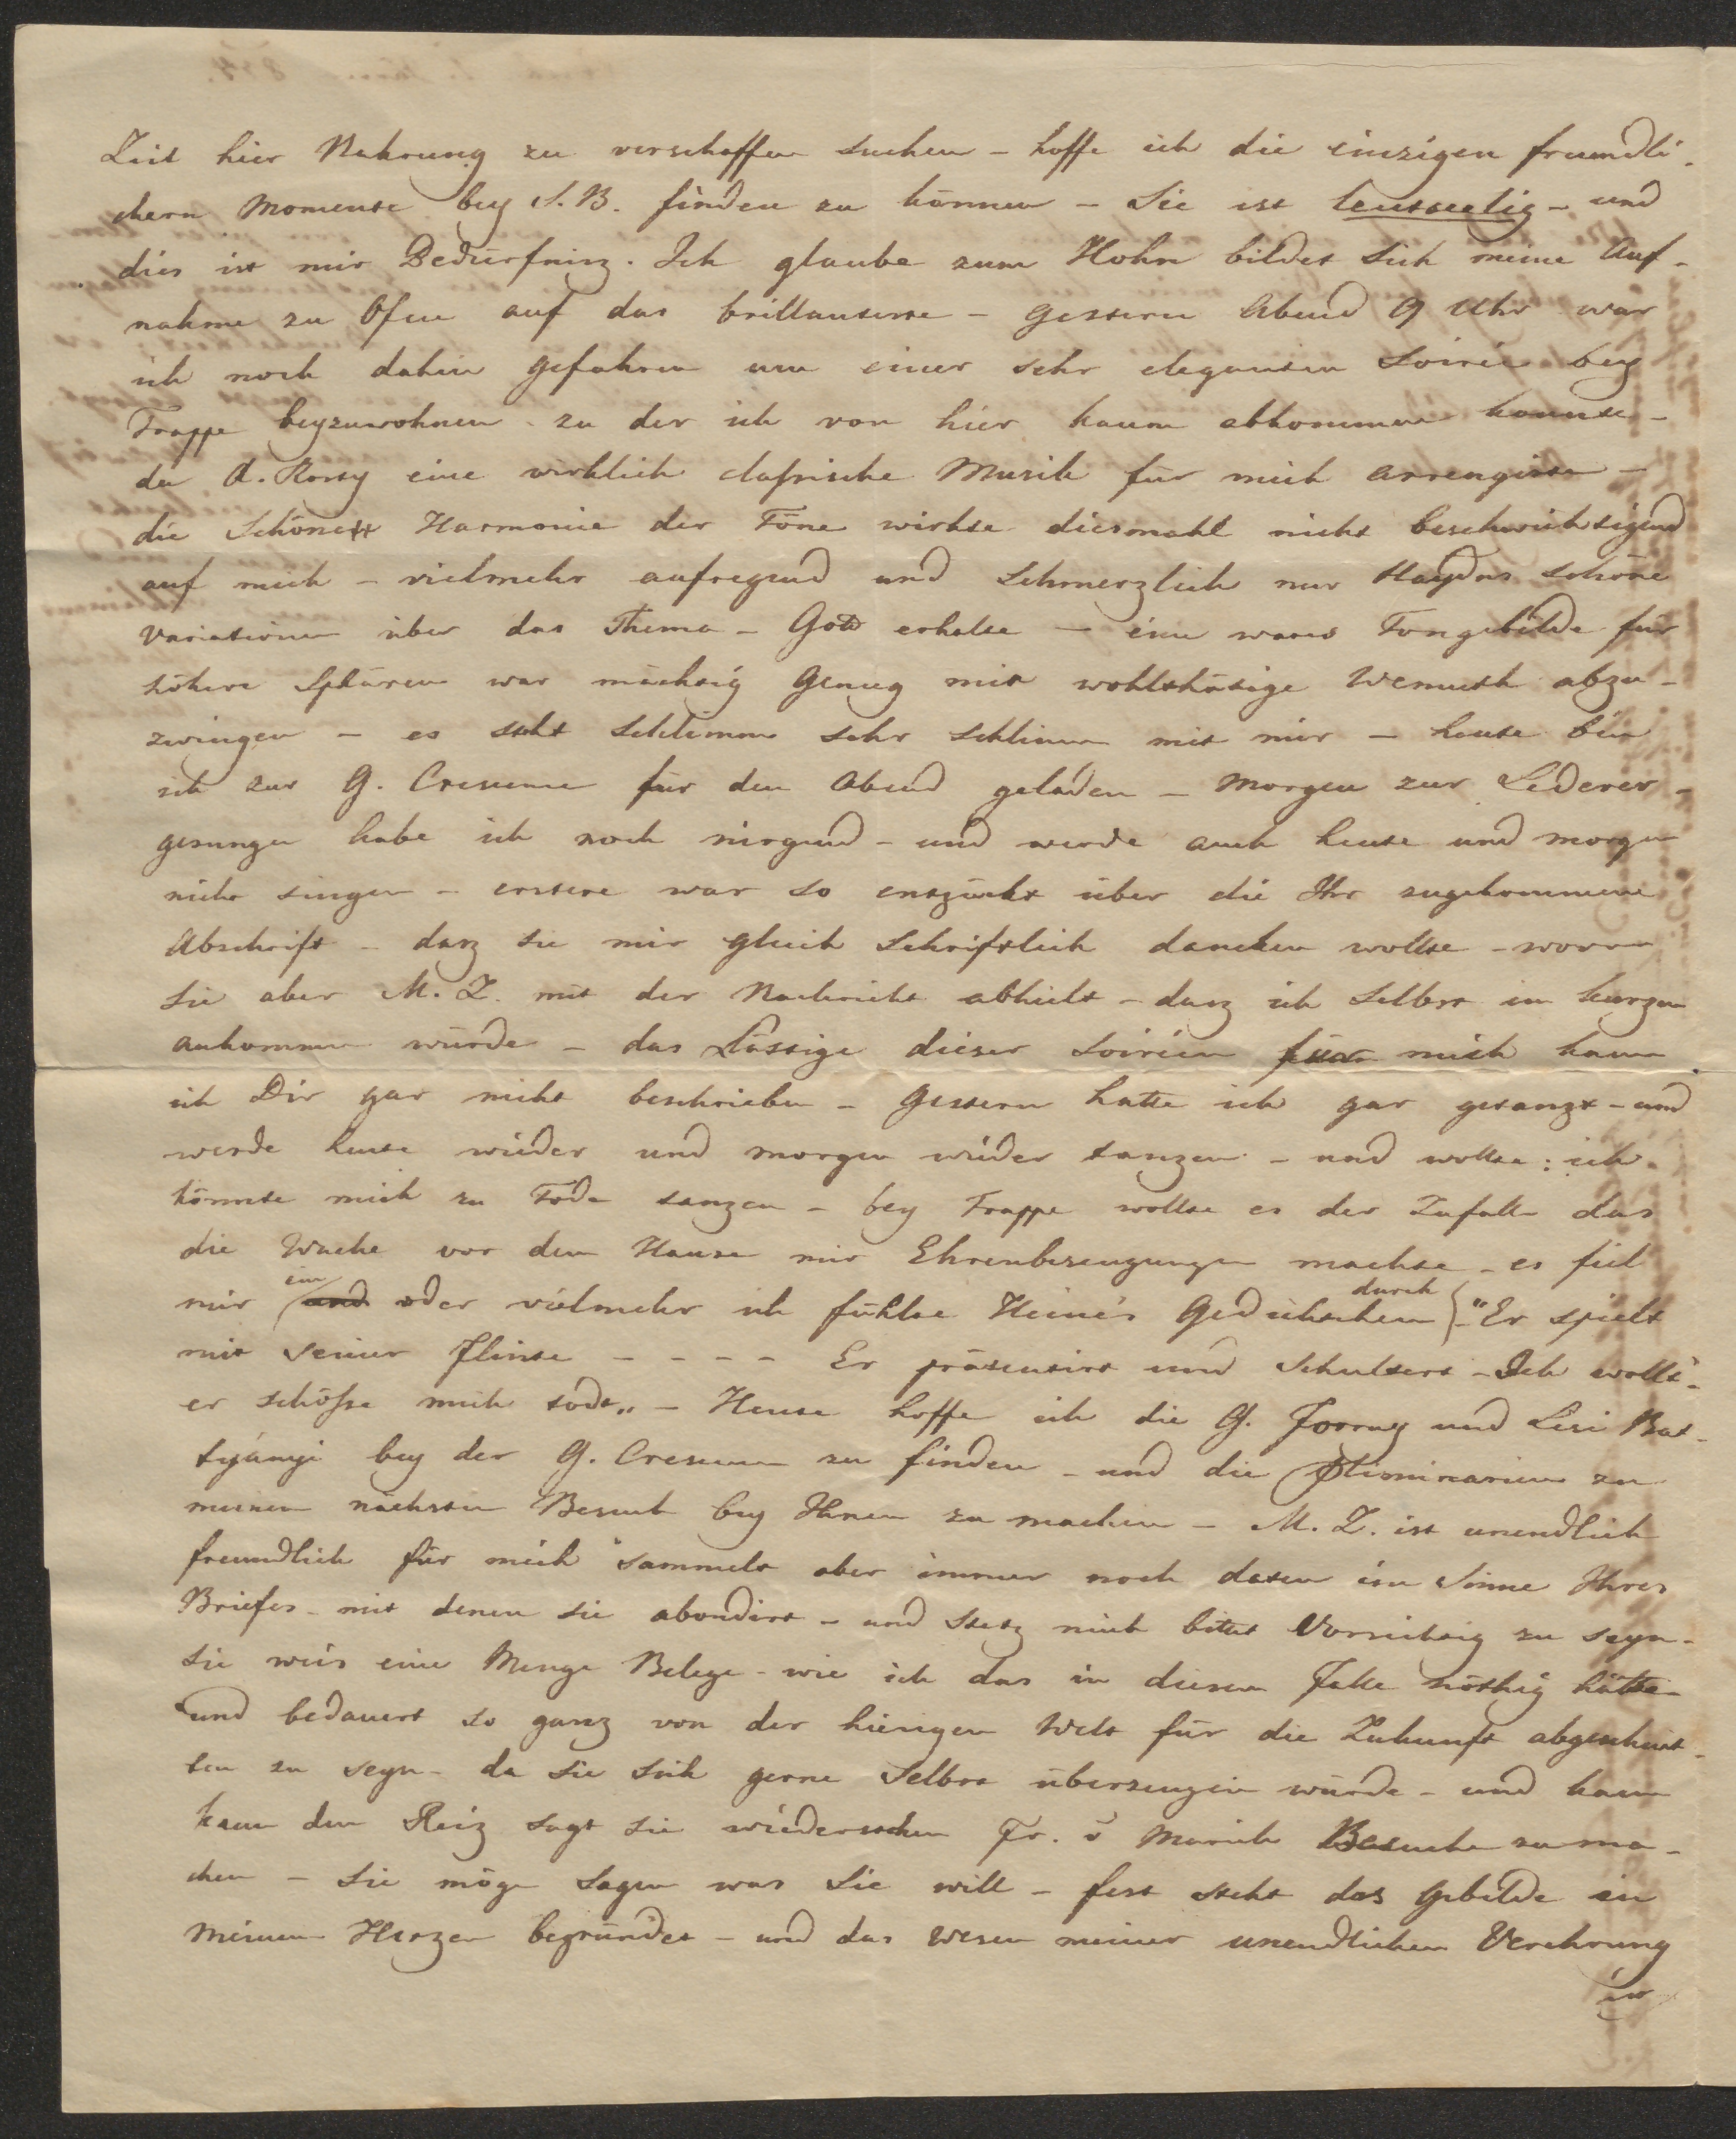 Zeit hier Nahrung zu verschaffen suchen - hoffe ich die einzigen freundli-
chern Momente bey S. B. finden zu können - Sie ist leutseelig - und
dies ist mir Bedürfniz. Ich glaube zum Hohn bildet sich meine Auf-
nahme zu Ofen auf das brillanteste - gestern Abend 9 Uhr war
ich noch dahin gefahren um einer sehr eleganten Soirée bey
Trappe beyzuwohnen - zu der ich von hier kaum abkommen konnte -
da A. Rosty eine wirklich classische Musik für mich arrengirte -
die Schönste Harmonie der Töne wirkte diesmahl nicht beschwichtigend
auf mich - vielmehr aufregend und Schmerzlich nur Haydns schöne
Variationen über das Thema - Gott erhalte - ein wares Tongebilde für
höhere Sphären war mächtig genug mir wohlthätige Wemuth abzu-
zwingen - es steht schlimm sehr schlimm mit mir - heute bin
ich zur G. Crescence für den Abend geladen - Morgen zur Lederer -
gesungen habe ich noch nirgend - und werde auch heute und morgen
nicht singen - erstere war so entzückt über die Ihr zugekommene
Abschrift - daz sie mir gleich Schriftlich dancken wollte - wovon
Sie aber M. Z. mit der Nachricht abhielt - daz ich Selbst in kurzem
ankommen würde - das Lästige dieser Soiréen für mich kann
ich Dir gar nicht beschrieben - gestern hatte ich gar getanzt - und
werde heute wieder und morgen wieder tanzen - und wollte: ich
könnte mich zu Tode tanzen - bey Trappe wollte es der Zufall das
die Wache vor dem Hause mir Ehrenbezeugungen machte - es fiel
mir ein oder vielmehr ich fühlte Heine's Gedichtchen durch - "Er spielt
mit seiner Flinte - - - - Er präsentirt und Schultert - Ich wollt'
er schösse mich todt" - Heute hoffe ich die G. Forray und Lisi Bat-
tyányi bey der G. Crescence zu finden - und die Pliminarien zu
meinem nächsten Besuch bey Ihnen zu machen - M. Z. ist unendlich
freundlich für mich sammelt aber immer noch daten im Sinne Ihres
Briefes - mit denen sie abondirt - und Stetz mich bittet Vorsichtig zu seyn -
Sie weis eine Menge Belege - wie ich das in diesem Falle nöthig hätte -
und bedauert so ganz von der hiesigen Welt für die Zukunft abgeschnit-
ten zu seyn - da sie sich gerne Selbst überzeugen würde - und kaum
kann dem Reiz sagt sie wiederstehen Fr. v Marich Besuche zu ma-
chen - Sie möge sagen was Sie will - fest steht das Gebilde in
meinem Herzen begründet - und das Wesen meiner unendlichen Verehrung